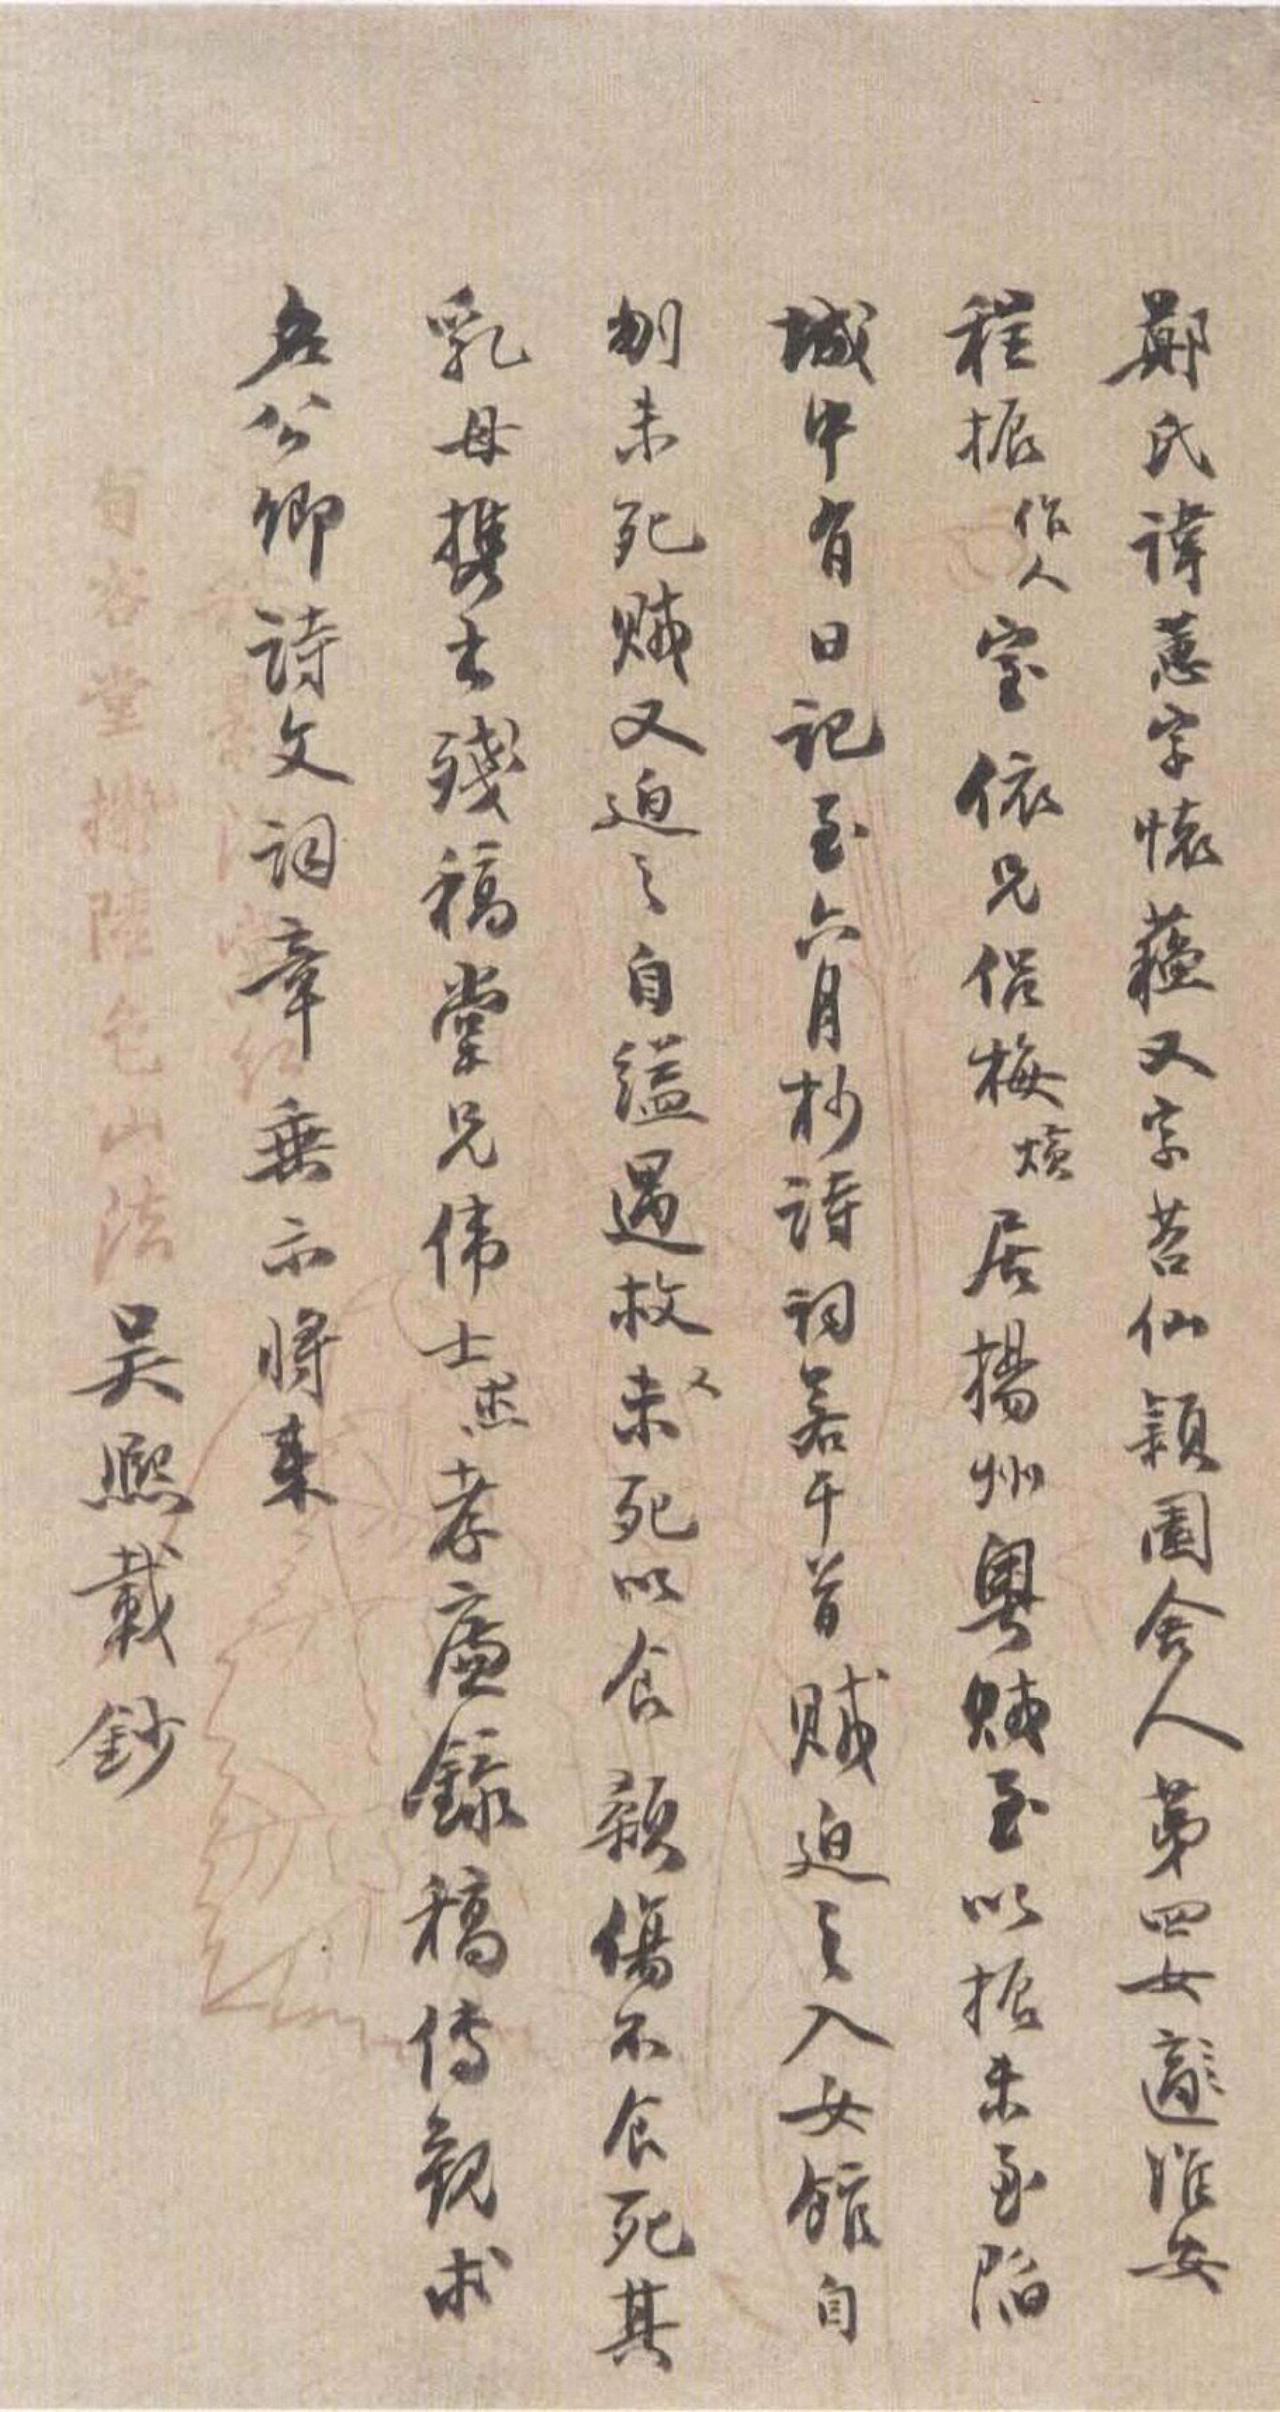 鄭氏諱蕙字懷蘊又字苕仙穎園舍人第四女適淮安
程振作人室依兄侶梅熿居揚州粵賊至以振未至陷
城中有日記至六月杪詩詞若干首賊迫之入女館自
刎未死賊又迫之自縊遇救又未死以食顙傷不食死其
乳母攜出殘稿堂兄偉士杰孝廉錄稿傳觀求
名公卿詩文詞章垂示將來
吳熙載鈔
山